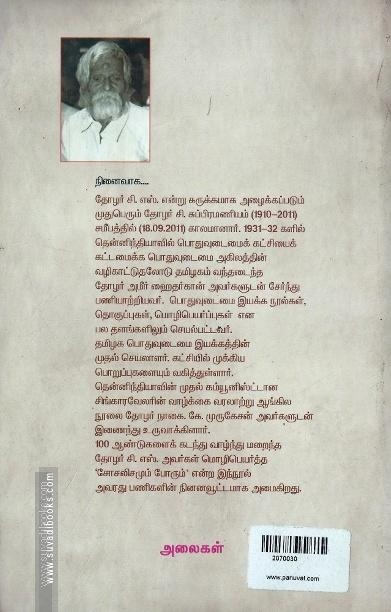 நினைவாக....
தோழர் சி. எஸ். என்று சுருக்கமாக அழைக்கப்படும்
முதுபெரும் தோழர் சி. சுப்பிரமணியம் (1910-2011)
சமீபத்தில் (18.09.2011) காலமானார். 1931-32 களில்
தென்னிந்தியாவில் பொதுவுடைமைக் கட்சியைக்
கட்டமைக்க பொதுவுடைமை அகிலத்தின்
வழிகாட்டுதலோடு தமிழகம் வந்தடைந்த
தோழர் அமீர் ஹைதர்கான் அவர்களுடன் சேர்ந்து
பணியாற்றியவர். பொதுவுடைமை இயக்க நூல்கள்,
தொகுப்புகள், மொழிபெயர்ப்புகள் என
பல தளங்களிலும் செயல்பட்டவர்.
தமிழக பொதுவுடைமை இயக்கத்தின்
முதல் செயலாளர். கட்சியில் முக்கிய
பொறுப்புகளையும் வகித்துள்ளார்.
தென்னிந்தியாவின் முதல் கம்யூனிஸ்ட்டான
சிங்காரவேலரின் வாழ்க்கை வரலாற்று ஆங்கில
நூலை தோழர் நாகை. கே. முருகேசன் அவர்களுடன்
இணைந்து உருவாக்கினார்.
100 ஆண்டுகளைக் கடந்து வாழ்ந்து மறைந்த
தோழர் சி. எஸ். அவர்கள் மொழிபெயர்த்த
'சோசலிசமும் போரும்' என்ற இந்நூல்
அவரது பணிகளின் நினைவூட்டமாக அமைகிறது.
அலைகள்
2070030
www.panuval.com
www.suvadibooks.com